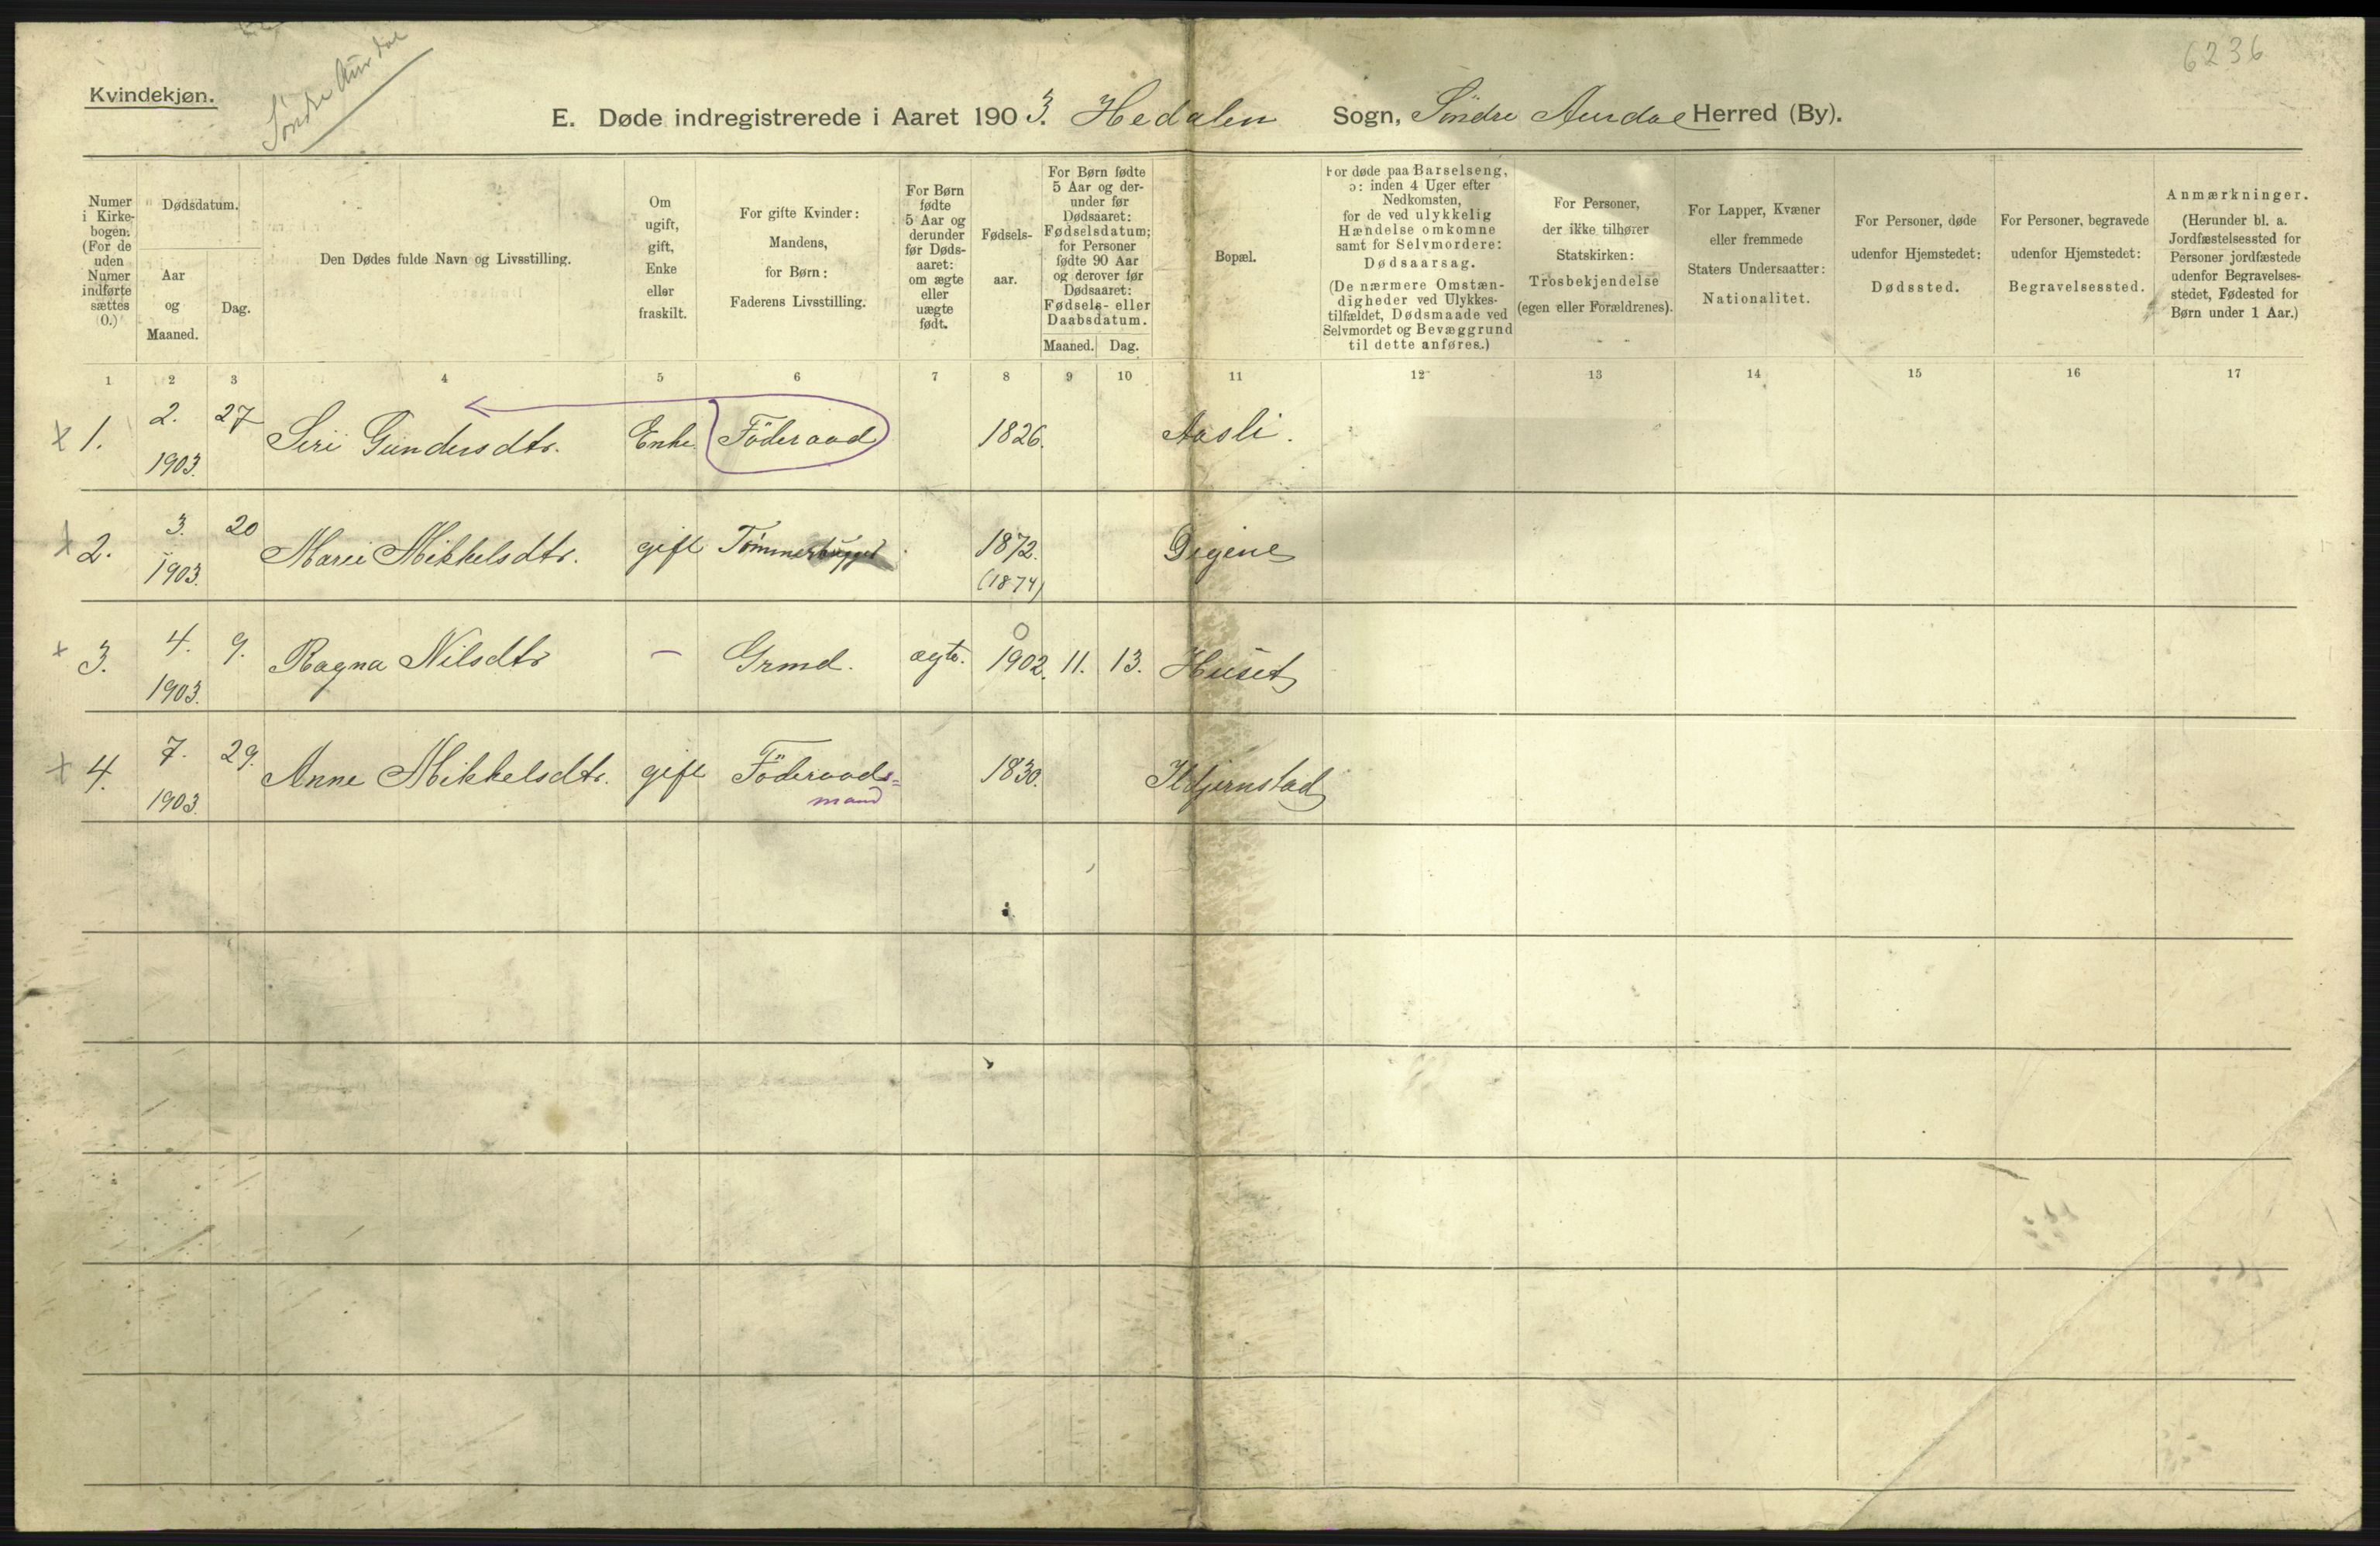 6236
Søndre Aurdal
Kvindekjøn.
E. Døde indregistrerede i Aaret 1903. Hedalen Sogn, Søndre Aurdal Herred (By).
Numer i Kirkebogen. (For de uden Numer indførte sættes 0.)
Dødsdatum.
Aar og Maaned.
Dag.
Den Dødes fulde Navn og Livsstilling.
Om ugift, gift, Enke eller fraskilt.
For gifte Kvinder: Mandens, for Børn: Faderens Livsstilling.
For Børn fødte 5 Aar og derunder før Dødsaaret: om ægte eller uægte født.
Fødselsaar.
For Børn fødte 5 Aar og derunder før Dødsaaret: Fødselsdatum; for Personer fødte 90 Aar og derover før Dødsaaret: Fødsels- eller Daabsdatum.
Maaned. Dag.
Bopæl.
For døde paa Barselseng, ɔ: inden 4 Uger efter Nedkomsten, for de ved ulykkelig Hændelse omkomne samt for Selvmordere: Dødsaarsag. (De nærmere Omstændigheder ved Ulykkestilfældet, Dødsmaade ved Selvmordet og Bevæggrund til dette anføres.)
For Personer, der ikke tilhører Statskirken: Trosbekjendelse (egen eller Forældrenes).
For Lapper, Kvæner eller fremmede Staters Undersaatter: Nationalitet.
For Personer, døde udenfor Hjemstedet: Dødssted.
For Personer, begravede udenfor Hjemstedet: Begravelsessted.
Anmærkninger. (Herunder bl. a. Jordfæstelsessted for Personer jordfæstede udenfor Begravelsesstedet, Fødested for Børn under 1 Aar.)
1 2 3 4 5 6 7 8 9 10 11 12 13 14 15 16 17
1. 2. 1903. 27 Siri Gundersdtr. Enke Föderaad 1826. Aasli.
2. 3. 1903. 20 Marie Mikkelsdtr. gift Tømmerhugger 1872. (1874)
3. 4. 1903. 9. Ragna Nilsdtr — Grmd. ægte. 1902. 11. 13. Huset
4. 7. 1903. 29. Anne Mikkelsdtr. gift Föderaads=mand 1830.